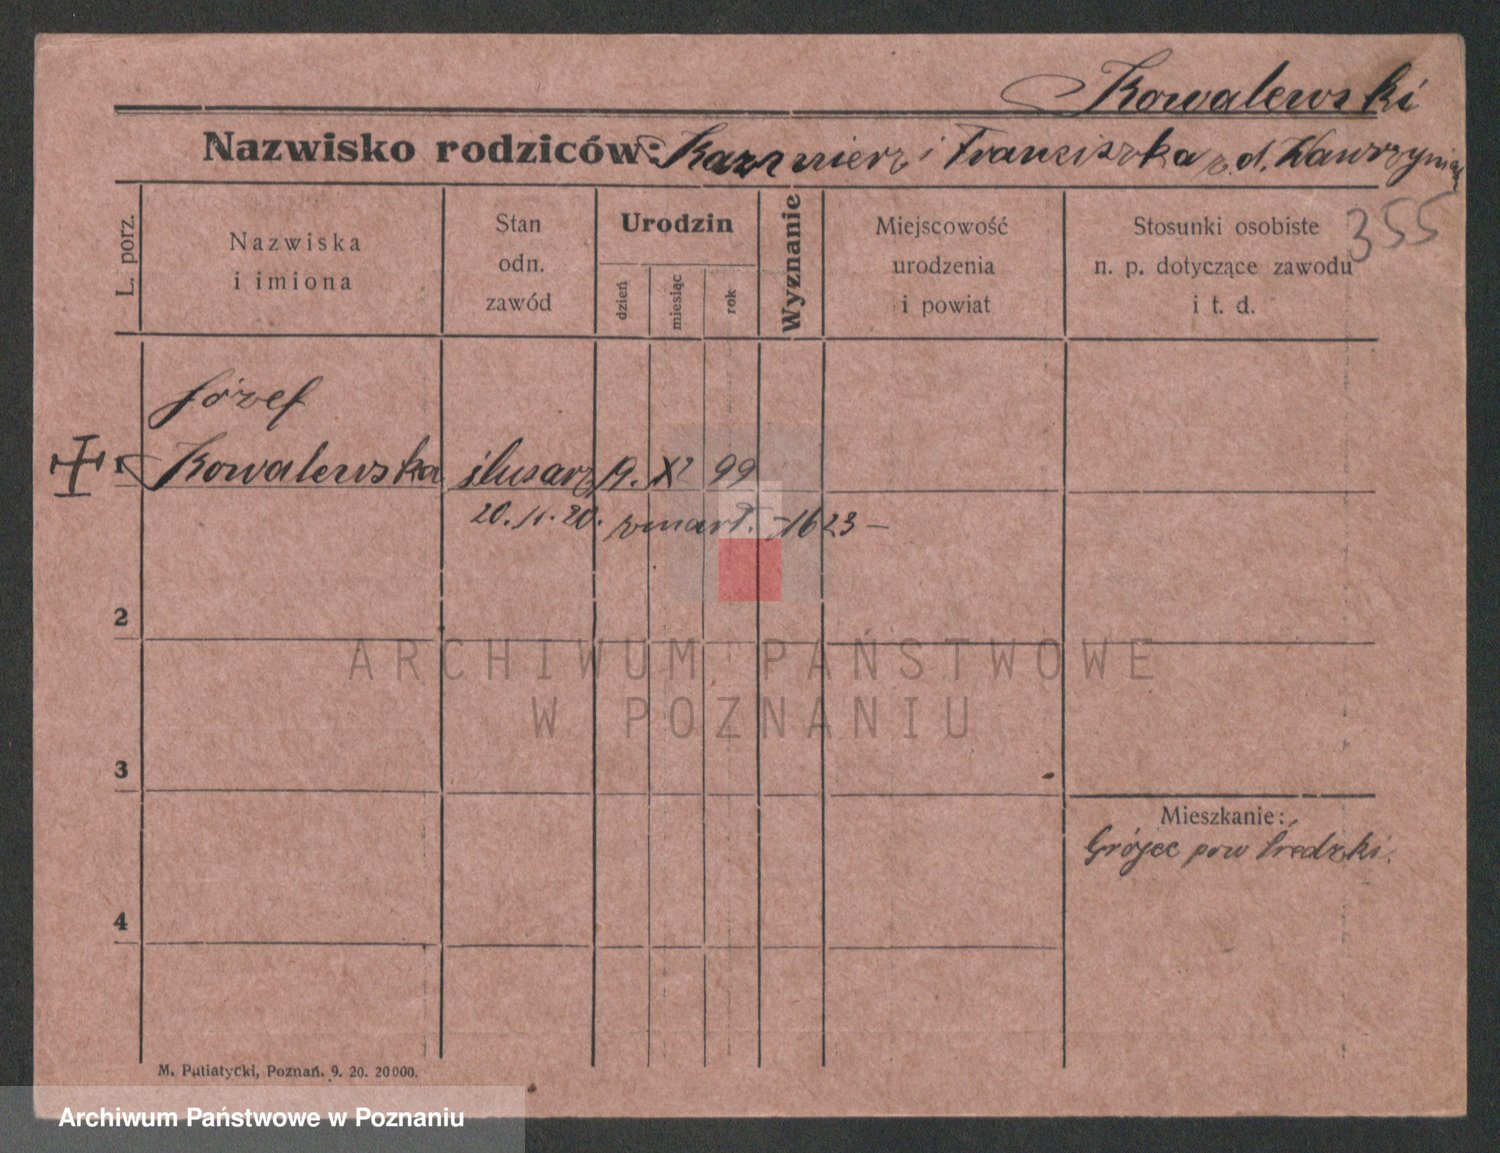 Kowalewski
Nazwisko rodziców: Kazimierz i Franciszka z d. Wawrzyniak
355
L. porz.
Nazwiska
i imiona
Stan
odn.
zawód
Urodzin
dzień
miesiąc
rok
Wyznanie
Miejscowość
urodzenia
i powiat
Stosunki osobiste
n. p. dotyczące zawodu
i t. d.
Józef
1 Kowalewska ślusarz 19. XI 99
20. 11. 20. zmarł. -1623-
2
ARCHIWUM PAŃSTWOWE
W POZNANIU
3
Mieszkanie:
Grójec pow Średzki.
4
M. Putiatycki, Poznań. 9. 20. 20000.
Archiwum Państwowe w Poznaniu